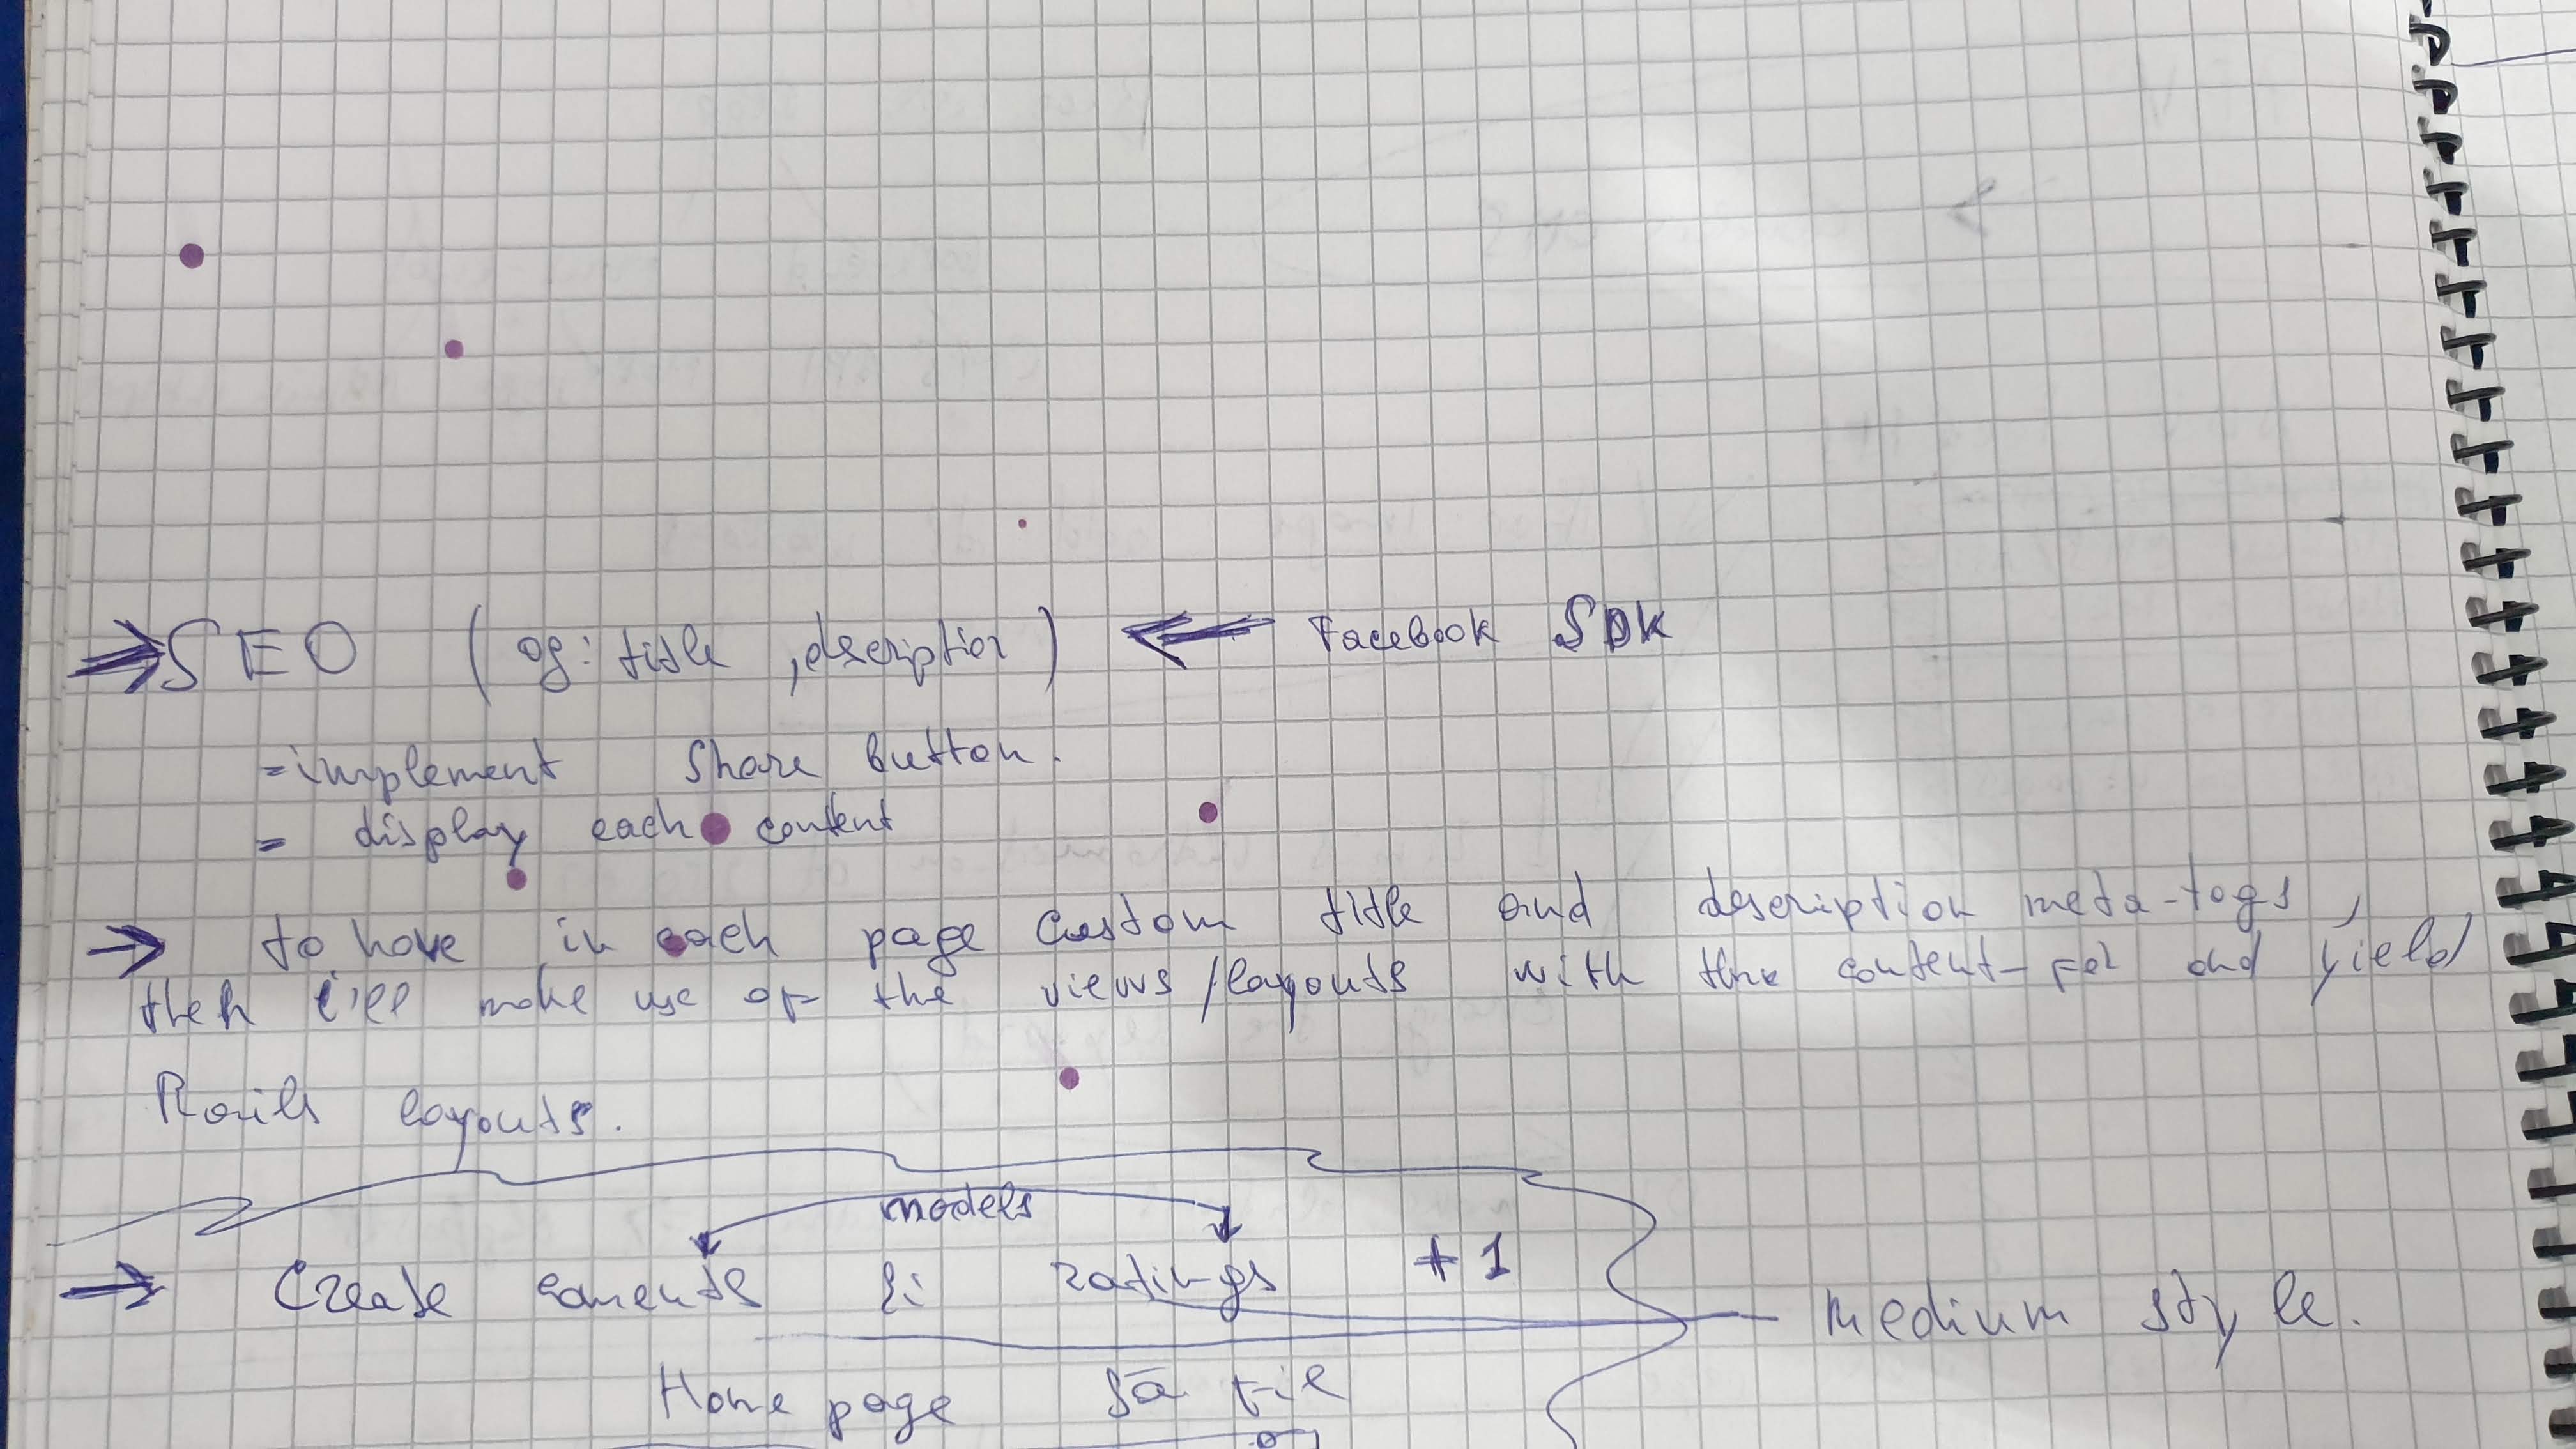 ⇒ SEO ( og: title , description ) ⇐ Facebook SDK
= implement Share button.
= display each content
→ to have in each page custom title and description meta-tags ,
then i'll make use of the views/layouts with the content-for and yield
Rails layouts.
models
→ Create coments și ratings +1
medium style.
Home page să fie